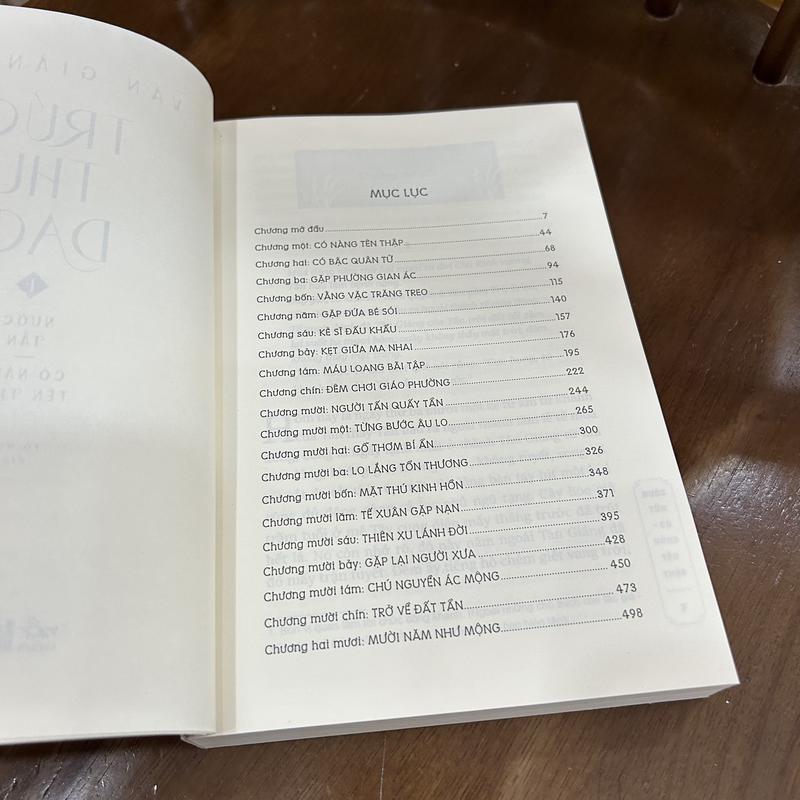 MỤC LỤC
Chương mở đầu 7
Chương một: CÓ NÀNG TÊN THẬP 44
Chương hai: CÓ BẬC QUÂN TỬ 68
Chương ba: GẶP PHƯỜNG GIAN ÁC 94
Chương bốn: VẰNG VẶC TRĂNG TREO 115
Chương năm: GẶP ĐỨA BÉ SÓI 140
Chương sáu: KẺ SĨ ĐẤU KHẨU 157
Chương bảy: KẸT GIỮA MA NHAI 176
Chương tám: MÁU LOANG BÃI TẬP 195
Chương chín: ĐÊM CHƠI GIÁO PHƯỜNG 222
Chương mười: NGƯỜI TẤN QUẤY TẦN 244
Chương mười một: TỪNG BƯỚC ÂU LO 265
Chương mười hai: GỖ THƠM BÍ ẨN 300
Chương mười ba: LO LẮNG TỔN THƯƠNG 326
Chương mười bốn: MẶT THÚ KINH HỒN 348
Chương mười lăm: TẾ XUÂN GẶP NẠN 371
Chương mười sáu: THIÊN XU LÁNH ĐỜI 395
Chương mười bảy: GẶP LẠI NGƯỜI XƯA 428
Chương mười tám: CHÚ NGUYỀN ÁC MỘNG 450
Chương mười chín: TRỞ VỀ ĐẤT TẦN 473
Chương hai mươi: MƯỜI NĂM NHƯ MỘNG 498